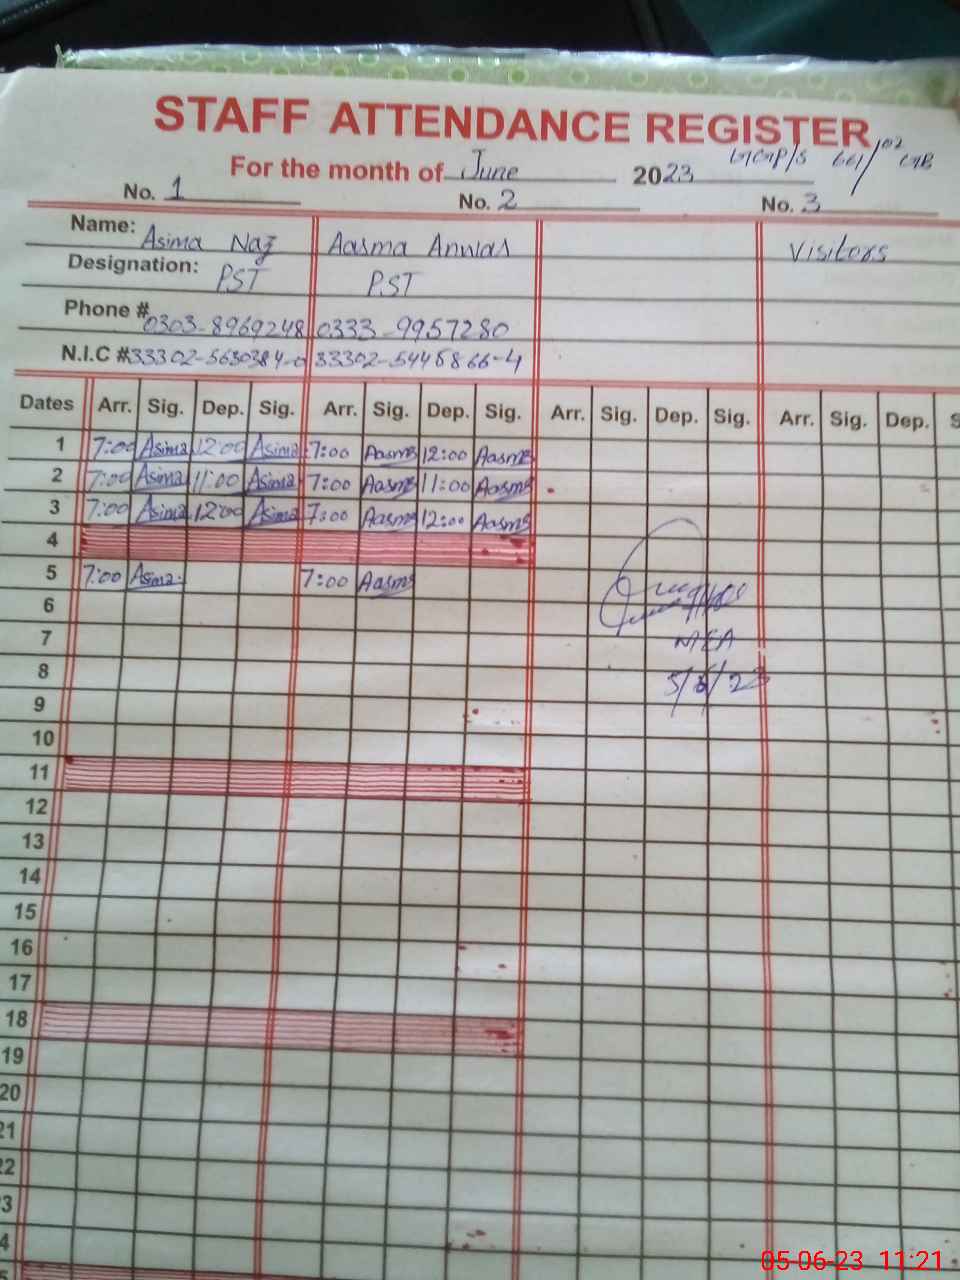 STAFF ATTENDANCE REGISTER
For the month of June 2023 GGP/S 661/02 GB
No. 1 No. 2 No. 3
Name: Asima Naz Aasma Anwar Visitors
Designation: PST PST
Phone # 0303-8969248 0333-9957280
N.I.C # 33302-5630384-0 33302-5445866-4
Dates Arr. Sig. Dep. Sig. Arr. Sig. Dep. Sig. Arr. Sig. Dep. Sig. Arr. Sig. Dep. S
1 7:00 Asima 12:00 Asima 7:00 Aasma 12:00 Aasma
2 7:00 Asima 11:00 Asima 7:00 Aasma 11:00 Aasma
3 7:00 Asima 12:00 Asima 7:00 Aasma 12:00 Aasma
4
5 7:00 Asima 7:00 Aasma
6
7 MEA
8 5/6/23
9
10
11
12
13
14
15
16
17
18
19
20
21
22
3
4
5
05-06-23 11:21